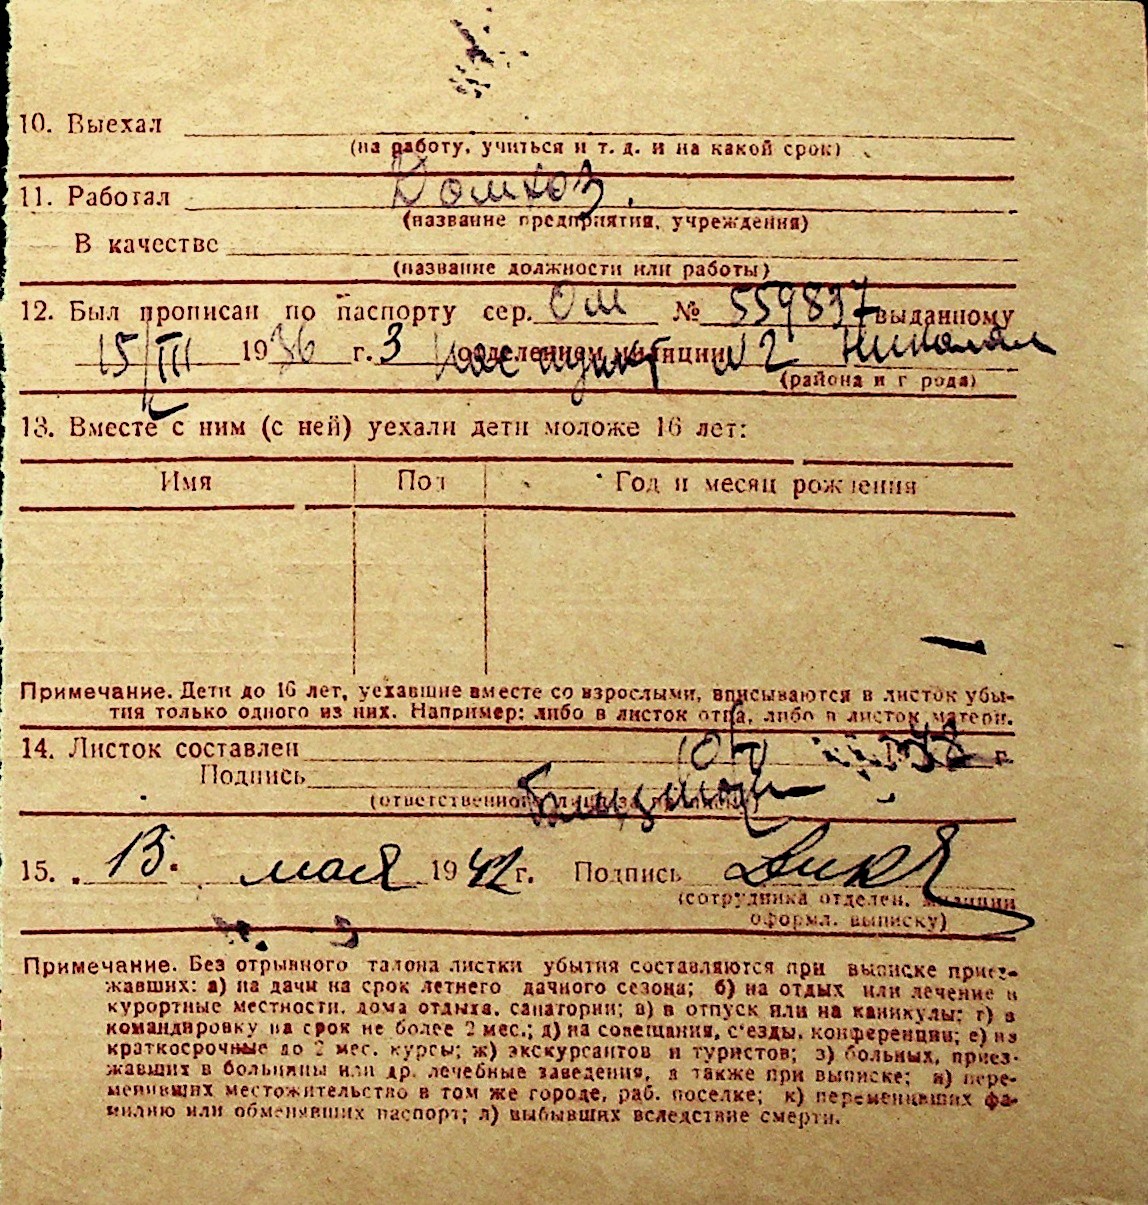 10. Выехал
(на работу, учиться и т. д. и на какой срок)
11. Работал Домхоз.
(название предприятия, учреждения)
В качестве
(название должности или работы)
12. Был прописан по паспорту сер. ОМ № 559897 выданному
15/III 1936 г. 3 отделением милиции N 2
(района и города)
13. Вместе с ним (с ней) уехали дети моложе 16 лет:
Имя Пол Год и месяц рождения
Примечание. Дети до 16 лет, уехавшие вместе со взрослыми, вписываются в листок убы-
тия только одного из них. Например: либо в листок отца, либо в листок матери.
14. Листок составлен г.
Подпись
(ответственного лица за прописку)
15. 13. мая 1942 г. Подпись
(сотрудника отделен. милиции
оформл. выписку)
Примечание. Без отрывного талона листки убытия составляются при выписке приез-
жавших: а) на дачи на срок летнего дачного сезона; б) на отдых или лечение в
курортные местности, дома отдыха, санатории; в) в отпуск или на каникулы; г) в
командировку на срок не более 2 мес.; д) на совещания, с'езды, конференции; е) на
краткосрочные до 2 мес. курсы; ж) экскурсантов и туристов; з) больных, приез-
жавших в больницы или др. лечебные заведения, а также при выписке; и) пере-
менивших местожительство в том же городе, раб. поселке; к) переменивших фа-
милию или обменявших паспорт; л) выбывших вследствие смерти.